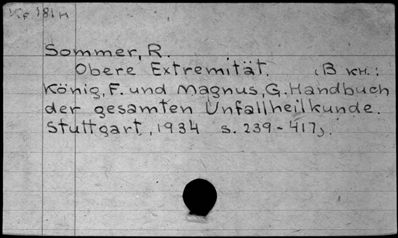 181 н
Sommer, R.
Obere Extremität. (В кн.:
König, F. und Magnus, G. Handbuch
der gesamten Unfallheilkunde.
Stuttgart, 1934 s. 239-417).